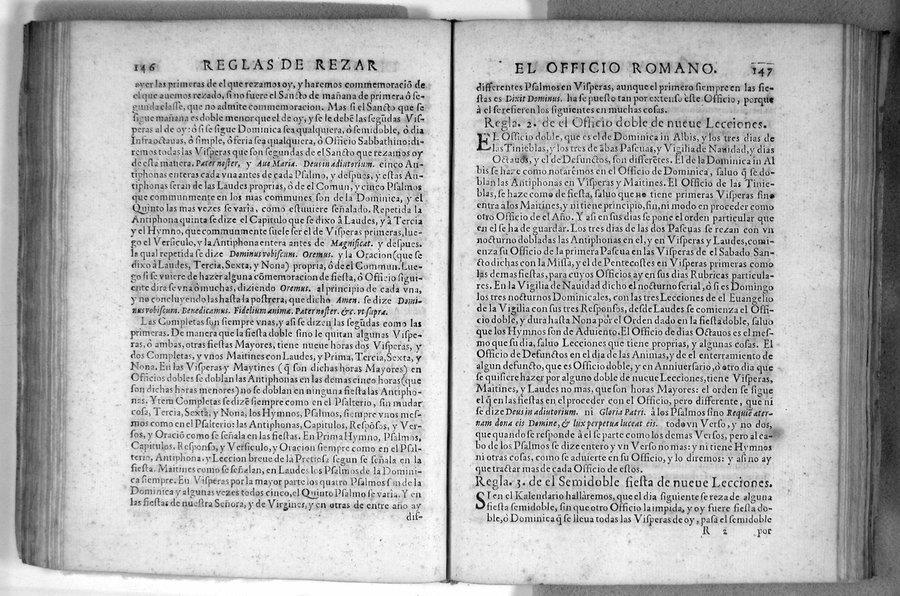 146 REGLAS DE REZAR
ayer las primeras de el que rezamos oy, y haremos commemoraciõ de
el que auemos rezado, sino fuere el Sancto de mañana de primera ó se-
gunda classe, que no admite commemoracion. Mas si el Sancto que se
sigue mañana es doble menor que el de oy, y se le debẽ las segũdas Vis-
peras al de oy: ó si se sigue Dominica sea qualquiera, ó semidoble, ó dia
Infraoctauas, ó simple, ó feria sea qualquiera, ó Officio Sabbathino: di-
remos todas las Visperas que son segundas de el Sancto que rezamos oy
de esta manera. Pater noster, y Aue Maria. Deus in adiutorium. cinco An-
tiphonas enteras cada vna antes de cada Psalmo, y despues, y estas An-
tiphonas seran de las Laudes proprias, ó de el Comun, y cinco Psalmos
que communmente en los mas communes son de la Dominica, y el
Quinto las mas vezes se varia, cómo estuuiere señalado. Repetida la
Antiphona quinta se dize el Capitulo que se dixo à Laudes, y à Tercia
y el Hymno, que communmente suele ser el de Visperas primeras, lue-
go el Versiculo, y la Antiphona entera antes de Magnificat. y despues.
la qual repetida se dize Dominus vobiscum. Oremus. y la Oracion (que se
dixo à Laudes, Tercia, Sexta, y Nona) propria, ó de el Commun. Lue-
go si se vuiere de hazer alguna cõmemoracion de fiesta, ó Officio sigui-
ente dira se vna ó muchas, diziendo Oremus. al principio de cada vna,
y no concluyendo las hasta la postrera, que dicho Amen. se dize Domi-
nus vobiscum. Benedicamus. Fidelium animæ. Pater noster. &c. vt supra.
Las Completas son siempre vnas, y assi se dizen las segũdas como las
primeras. De manera que la fiesta doble sino le quitan algunas Vispe-
ras, ò ambas, otras fiestas Mayores, tiene nueue horas dos Visperas, y
dos Completas, y vnos Maitines con Laudes, y Prima, Tercia, Sexta, y
Nona. En las Visperas y Maytines (q̃ son dichas horas Mayores) en
Officios dobles se doblan las Antiphonas en las demas cinco horas (que
son dichas horas menores) no se doblan en ninguna fiesta las Antipho-
nas. Ytem Completas se dizẽ siempre como en el Psalterio, sin mudar
cosa, Tercia, Sexta, y Nona, los Hymnos, Psalmos, siempre vnos mes-
mos como en el Psalterio: las Antiphonas, Capitulos, Respõsos, y Ver-
sos, y Oraciõ como se señala en las fiestas. En Prima Hymno, Psalmos,
Capitulos. Responso, y Versiculo, y Oracion siempre como en el Psal-
terio, Antiphona, y Leccion breue de la Preciosa segun se señala en la
fiesta. Maitines como se señalan, en Laudes los Psalmos de la Domini-
ca siempre. En Visperas por la mayor parte los quatro Psalmos son de la
Dominica y algunas vezes todos cinco, el Quinto Psalmo se varia. Y en
las fiestas de nuestra Señora, y de Virgines, y en otras de entre año ay
dif-
EL OFFICIO ROMANO. 147
differentes Psalmos en Visperas, aunque el primero siempre en las fie-
stas es Dixit Dominus. ha se puesto tan por extenso este Officio, porque
á el se refieren los siguientes en muchas cosas.
Regla. 2. de el Officio doble de nueue Lecciones.
EL Officio doble, que es el de Dominica in Albis, y los tres dias de
las Tinieblas, y los tres de ãbas Pascuas, y Vigilia de Nauidad, y dias
Octauos, y el de Defunctos, son differẽtes. El de la Dominica in Al
bis se haze como notarèmos en el Officio de Dominica, saluo q̃ se do-
blan las Antiphonas en Visperas y Maitines. El Officio de las Tinie-
blas, se haze como de fiesta, saluo que no tiene primeras Visperas sino
entra a los Maitines, y ni tiene principio, sin, ni modo en proceder como
otro Officio de el Año. Y assi en sus dias se pone el orden particular que
en el se ha de guardar. Los tres dias de las dos Pascuas se rezan con vn
nocturno dobladas las Antiphonas en el, y en Visperas y Laudes, comi-
enza su Officio de la primera Pascua en las Visperas de el Sabado San-
cto dichas con la Missa, y el de Pentecostes en Visperas primeras como
las demas fiestas, para cuyos Officios ay en sus dias Rubricas particula-
res. En la Vigilia de Nauidad dicho el nocturno ferial, ó si es Domingo
los tres nocturnos Dominicales, con las tres Lecciones de el Euangelio
de la Vigilia con sus tres Responsos, desde Laudes se comienza el Offi-
cio doble, y dura hasta Nona por el Orden dado en la fiesta doble, saluo
que los Hymnos son de Aduiento. El Officio de dias Octauos es el mes-
mo que su dia, saluo Lecciones que tiene proprias, y algunas cosas. El
Officio de Defunctos en el dia de las Animas, y de el enterramiento de
algun defuncto, que es Officio doble, y en Anniuersario, ó otro dia que
se quisiere hazer por alguno doble de nueue Lecciones, tiene Visperas,
Maitines, y Laudes no mas, que son horas Mayores: el orden se sigue
el q̃ en las fiestas en el proceder con el Officio, pero differente, que ni
se dize Deus in adiutorium. ni Gloria Patri. à los Psalmos sino Requiẽ ater-
nam dona eis Domine, & lux perpetua luceat eis. todo vn Verso, y no dos,
que quando se responde à el se parte como los demas Versos, pero al ca-
bo de los Psalmos se dize entero y vn Verso no mas: y ni tiene Hymnos
ni otras cosas, como se aduierte en su Officio, y lo diremos: y assi no ay
que tractar mas de cada Officio de estos.
Regla. 3. de el Semidoble fiesta de nueue Lecciones.
SI en el Kalendario halláremos, que el dia siguiente se reza de alguna
fiesta semidoble, sin que otro Officio la impida, y oy fuere fiesta do-
ble, ò Dominica q̃ se lleua todas las Visperas de oy, passa el semidoble
R 2 por